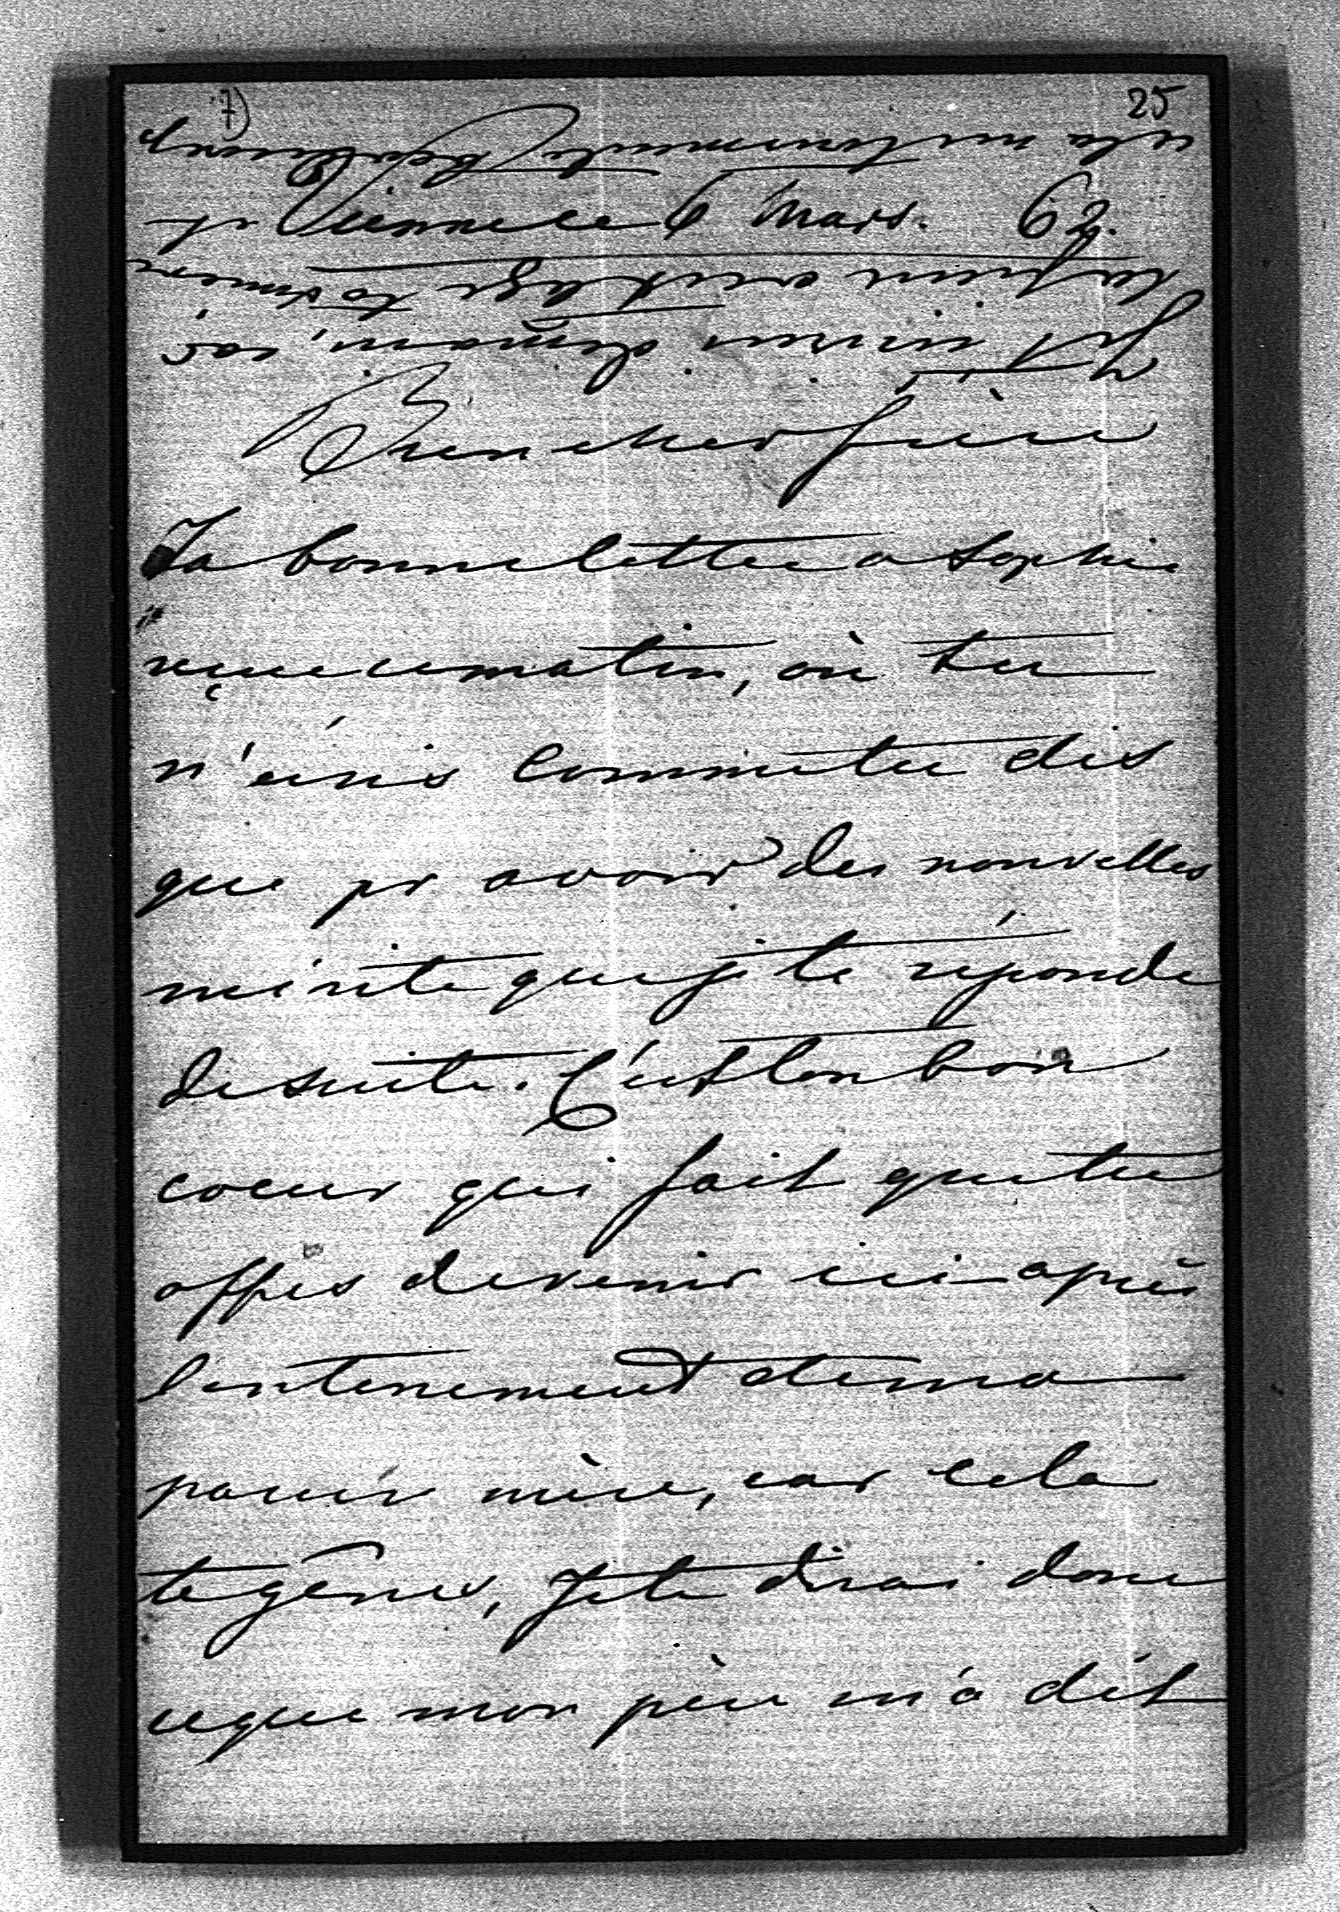 7) 25
Vienne ce 6 Mars. 62.
Bien cher frère
Ta bonne lettre a Sophie
reçue ce matin, où tu
n'écris comme tu dis
que pr avoir des nouvelles
mérite que je te réponde
de suite. C'est ton bon
coeur qui fait que tu
offres de venir ici après
l'enterrement de ma
pauvre mère, car cela
te gêne, je te dirai donc
ce que mon père m'a dit